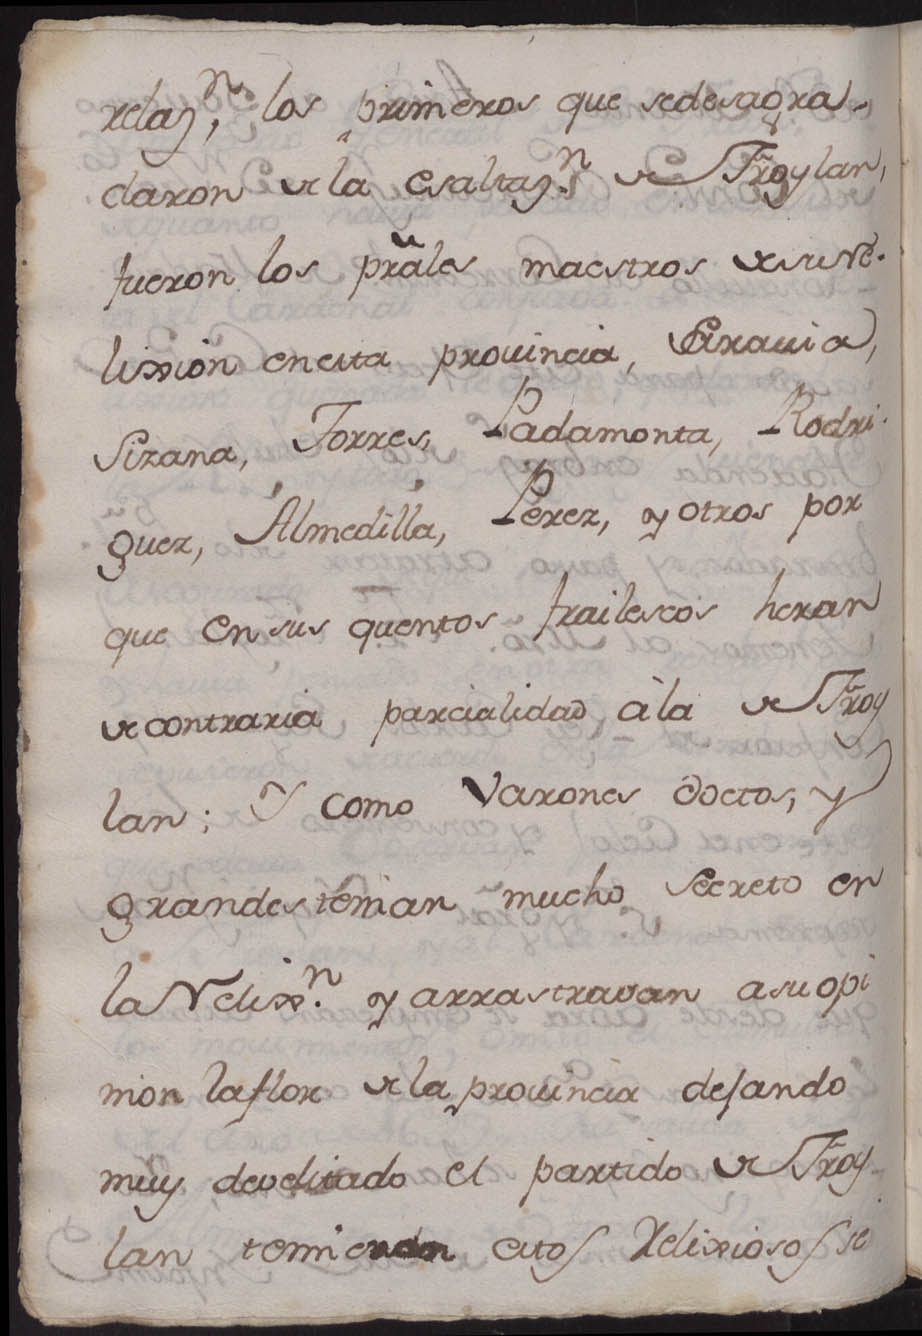 relaz.n, los primeros que sedesagra-
daron de la esaltaz.n de Froylan,
fueron los prâles maestros desu Re-
lixion enesta prouincia,
Sizana, Torres, Padamonta, Rodri-
guez, Almedilla, Perez, y otros por
que en sus quentos frailescos heran
de contraria parcialidad, à la de Froy
lan; Y como Varones doctos, y
grandes tenian mucho secreto en
la Relix.n y arrastravan asu opi
nion laflor de la prouincia dejando
muy develitado el partido de Froy-
lan estos Relixiosos se